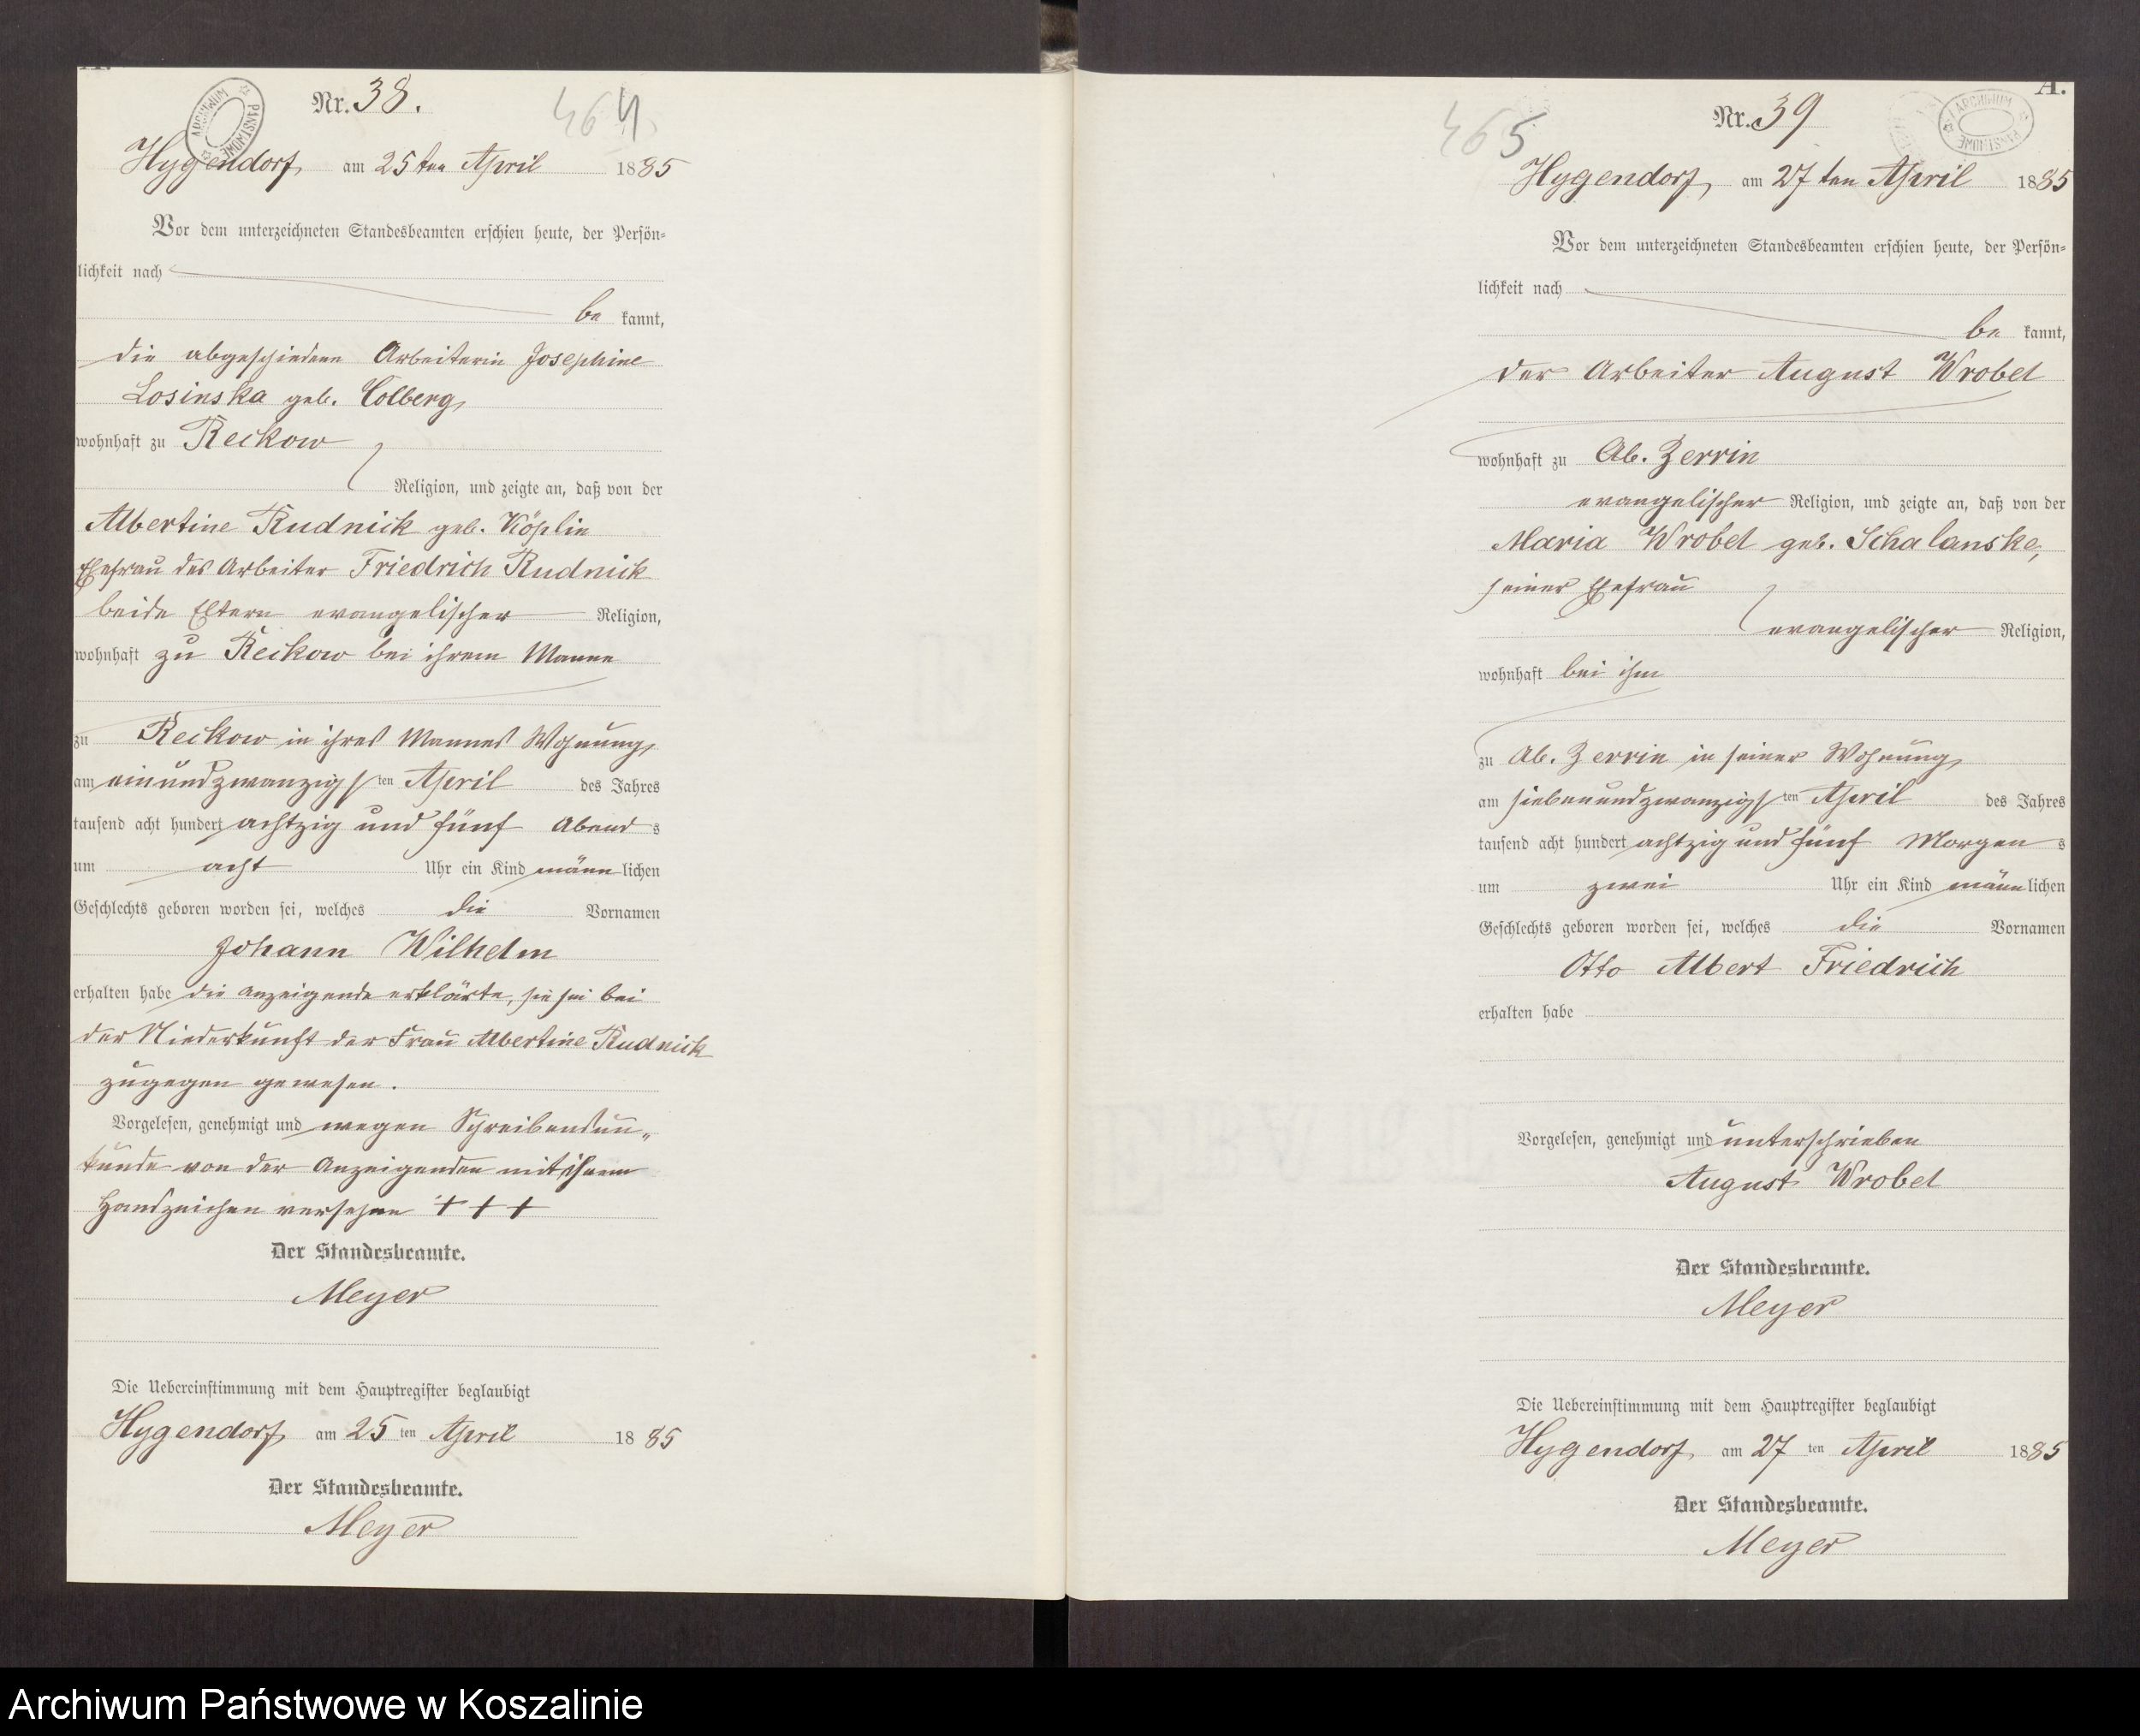 Nr. 38.
464
ARCHIWUM PAŃSTWOWE
Hygendorf, am 25ten April 1885
Vor dem unterzeichneten Standesbeamten erschien heute, der Persön-
lichkeit nach
be kannt,
die abgeschiedene Arbeiterin Josephine
Losinska geb. Colberg,
wohnhaft zu Reckow
Religion, und zeigte an, daß von der
Albertine Rudnick geb. Köplin
Ehefrau des Arbeiter Friedrich Rudnick
beide Eltern evangelischer Religion,
wohnhaft zu Reckow bei ihrem Manne
zu Reckow in ihres Mannes Wohnung,
am einundzwanzigsten April des Jahres
tausend acht hundert achtzig und fünf Abends
um acht Uhr ein Kind männlichen
Geschlechts geboren worden sei, welches die Vornamen
Johann Wilhelm
erhalten habe die Anzeigende erklärte, sie sei bei
der Niederkunft der Frau Albertine Rudnick
zugegen gewesen.
Vorgelesen, genehmigt und wegen Schreibensun„
kunde von der Anzeigenden mit ihrem
Handzeichen versehen + + +
Der Standesbeamte.
Meyer
Die Uebereinstimmung mit dem Hauptregister beglaubigt
Hygendorf, am 25 ten April 1885
Der Standesbeamte.
Meyer
A.
Nr. 39
465
ARCHIWUM PAŃSTWOWE
Hygendorf, am 27ten April 1885
Vor dem unterzeichneten Standesbeamten erschien heute, der Persön-
lichkeit nach
be kannt,
der Arbeiter August Wrobel
wohnhaft zu Ab. Zerrin
evangelischer Religion, und zeigte an, daß von der
Maria Wrobel geb. Schalanske,
seiner Ehefrau
evangelischer Religion,
wohnhaft bei ihm
zu Ab. Zerrin in seiner Wohnung,
am siebenundzwanzigsten April des Jahres
tausend acht hundert achtzig und fünf Morgens
um zwei Uhr ein Kind männlichen
Geschlechts geboren worden sei, welches die Vornamen
Otto Albert Friedrich
erhalten habe
Vorgelesen, genehmigt und unterschrieben
August Wrobel
Der Standesbeamte.
Meyer
Die Uebereinstimmung mit dem Hauptregister beglaubigt
Hygendorf, am 27 ten April 1885
Der Standesbeamte.
Meyer
Archiwum Państwowe w Koszalinie